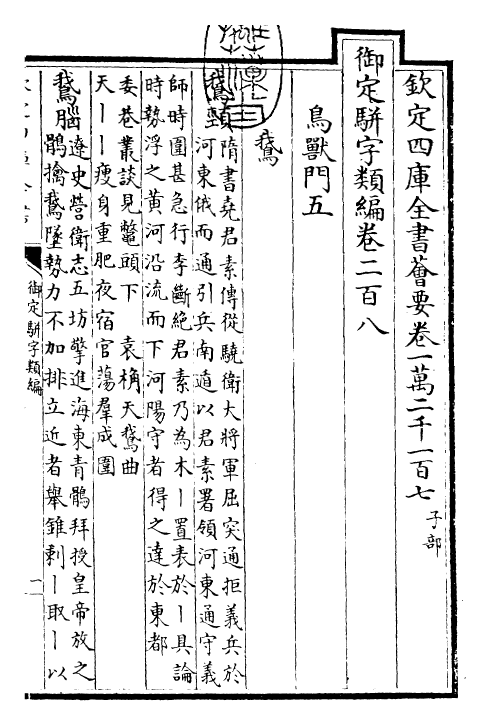 欽定四庫全書薈要卷一萬二千一百七 子部
御定駢字類編卷二百八
鳥獸門五
鵞
鵞頸 隋書堯君素傳從驍衛大將軍屈突通拒義兵於
河東俄而通引兵南遁以君素署領河東通守義
師時圍甚急行李斷絕君素乃為木丨置表於丨具論
時勢浮之黄河沿流而下河陽守者得之達於東都
委巷叢談見鼈頭下 袁桷天鵞曲
天丨丨瘦身重肥夜宿官蕩羣成圍
鵞腦 遼史營衛志五坊擎進海東青鶻拜授皇帝放之
鶻擒鵞墜勢力不加排立近者舉錐刺丨取丨以
御定駢字類編